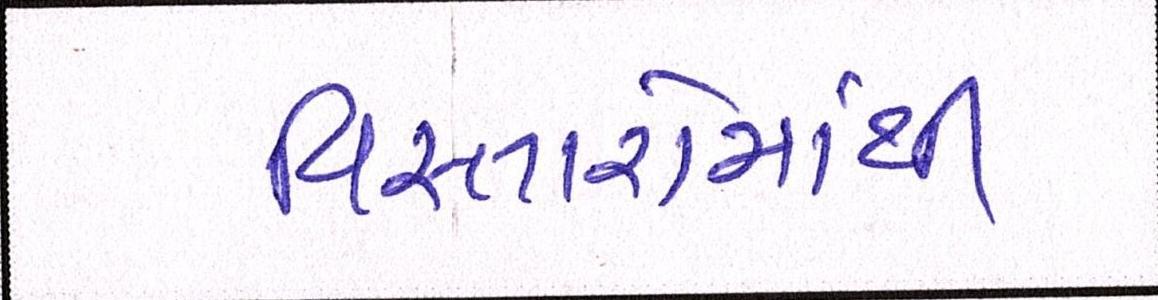 વિસ્તારોમાંથી